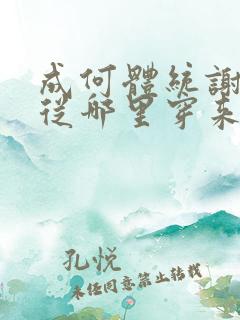 成何體統謝
從哪里穿来
孔悦
未经同意禁止转载